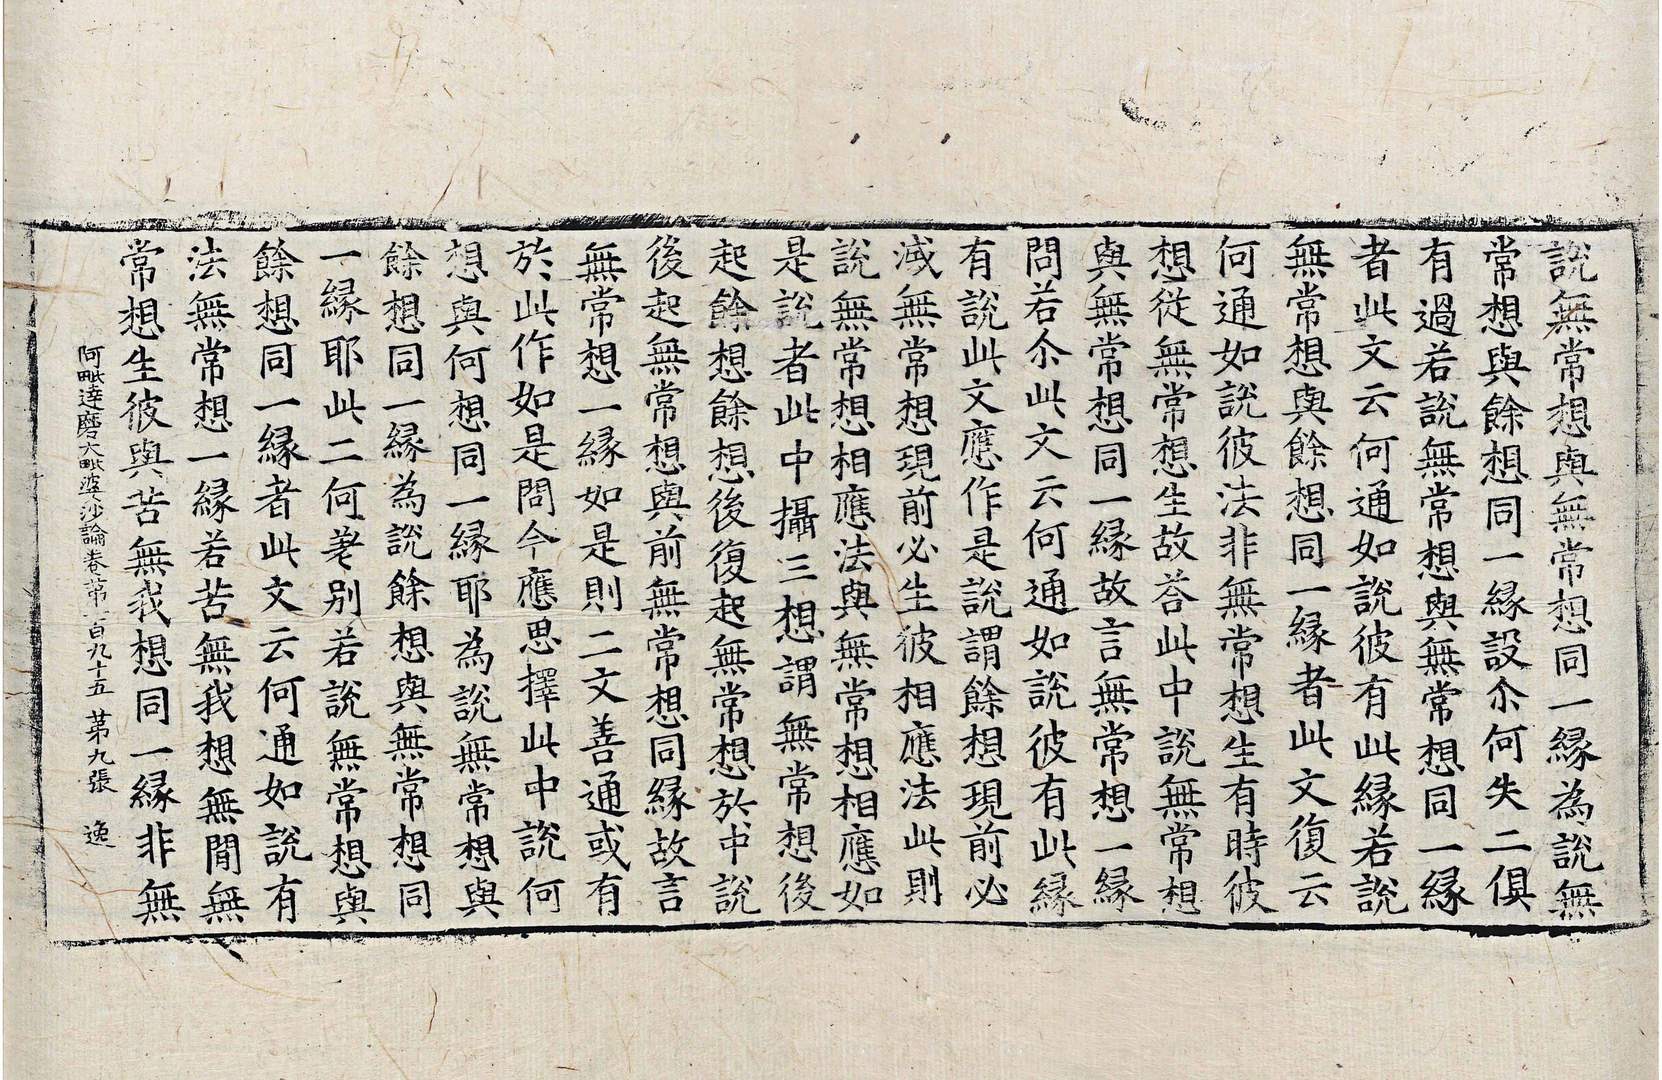 說無常想與無常想同一縁為說無
常想與餘想同一縁設尒何失二俱
有過若說無常想與無常想同一縁
者此文云何通如說彼有此縁若說
無常想與餘想同一縁者此文復云
何通如說彼法非無常想生有時彼
想從無常想生故荅此中說無常想
與無常想同一縁故言無常想一縁
問若尒此文云何通如說彼有此縁
有說此文應作是說謂餘想現前必
滅無常想現前必生彼相應法此則
說無常想相應法與無常想相應如
是說者此中攝三想謂無常想後
起餘想餘想後復起無常想於中說
後起無常想與前無常想同縁故言
無常想一縁如是則二文善通或有
於此作如是問今應思擇此中說何
想與何想同一縁耶為說無常想與
餘想同一縁為說餘想與無常想同
一縁耶此二何差別若說無常想與
餘想同一縁者此文云何通如說有
法無常想一縁若苦無我想無閒無
常想生彼與苦無我想同一縁非無
阿毗達磨大毗婆沙論卷第一百九十五 第九張 逸